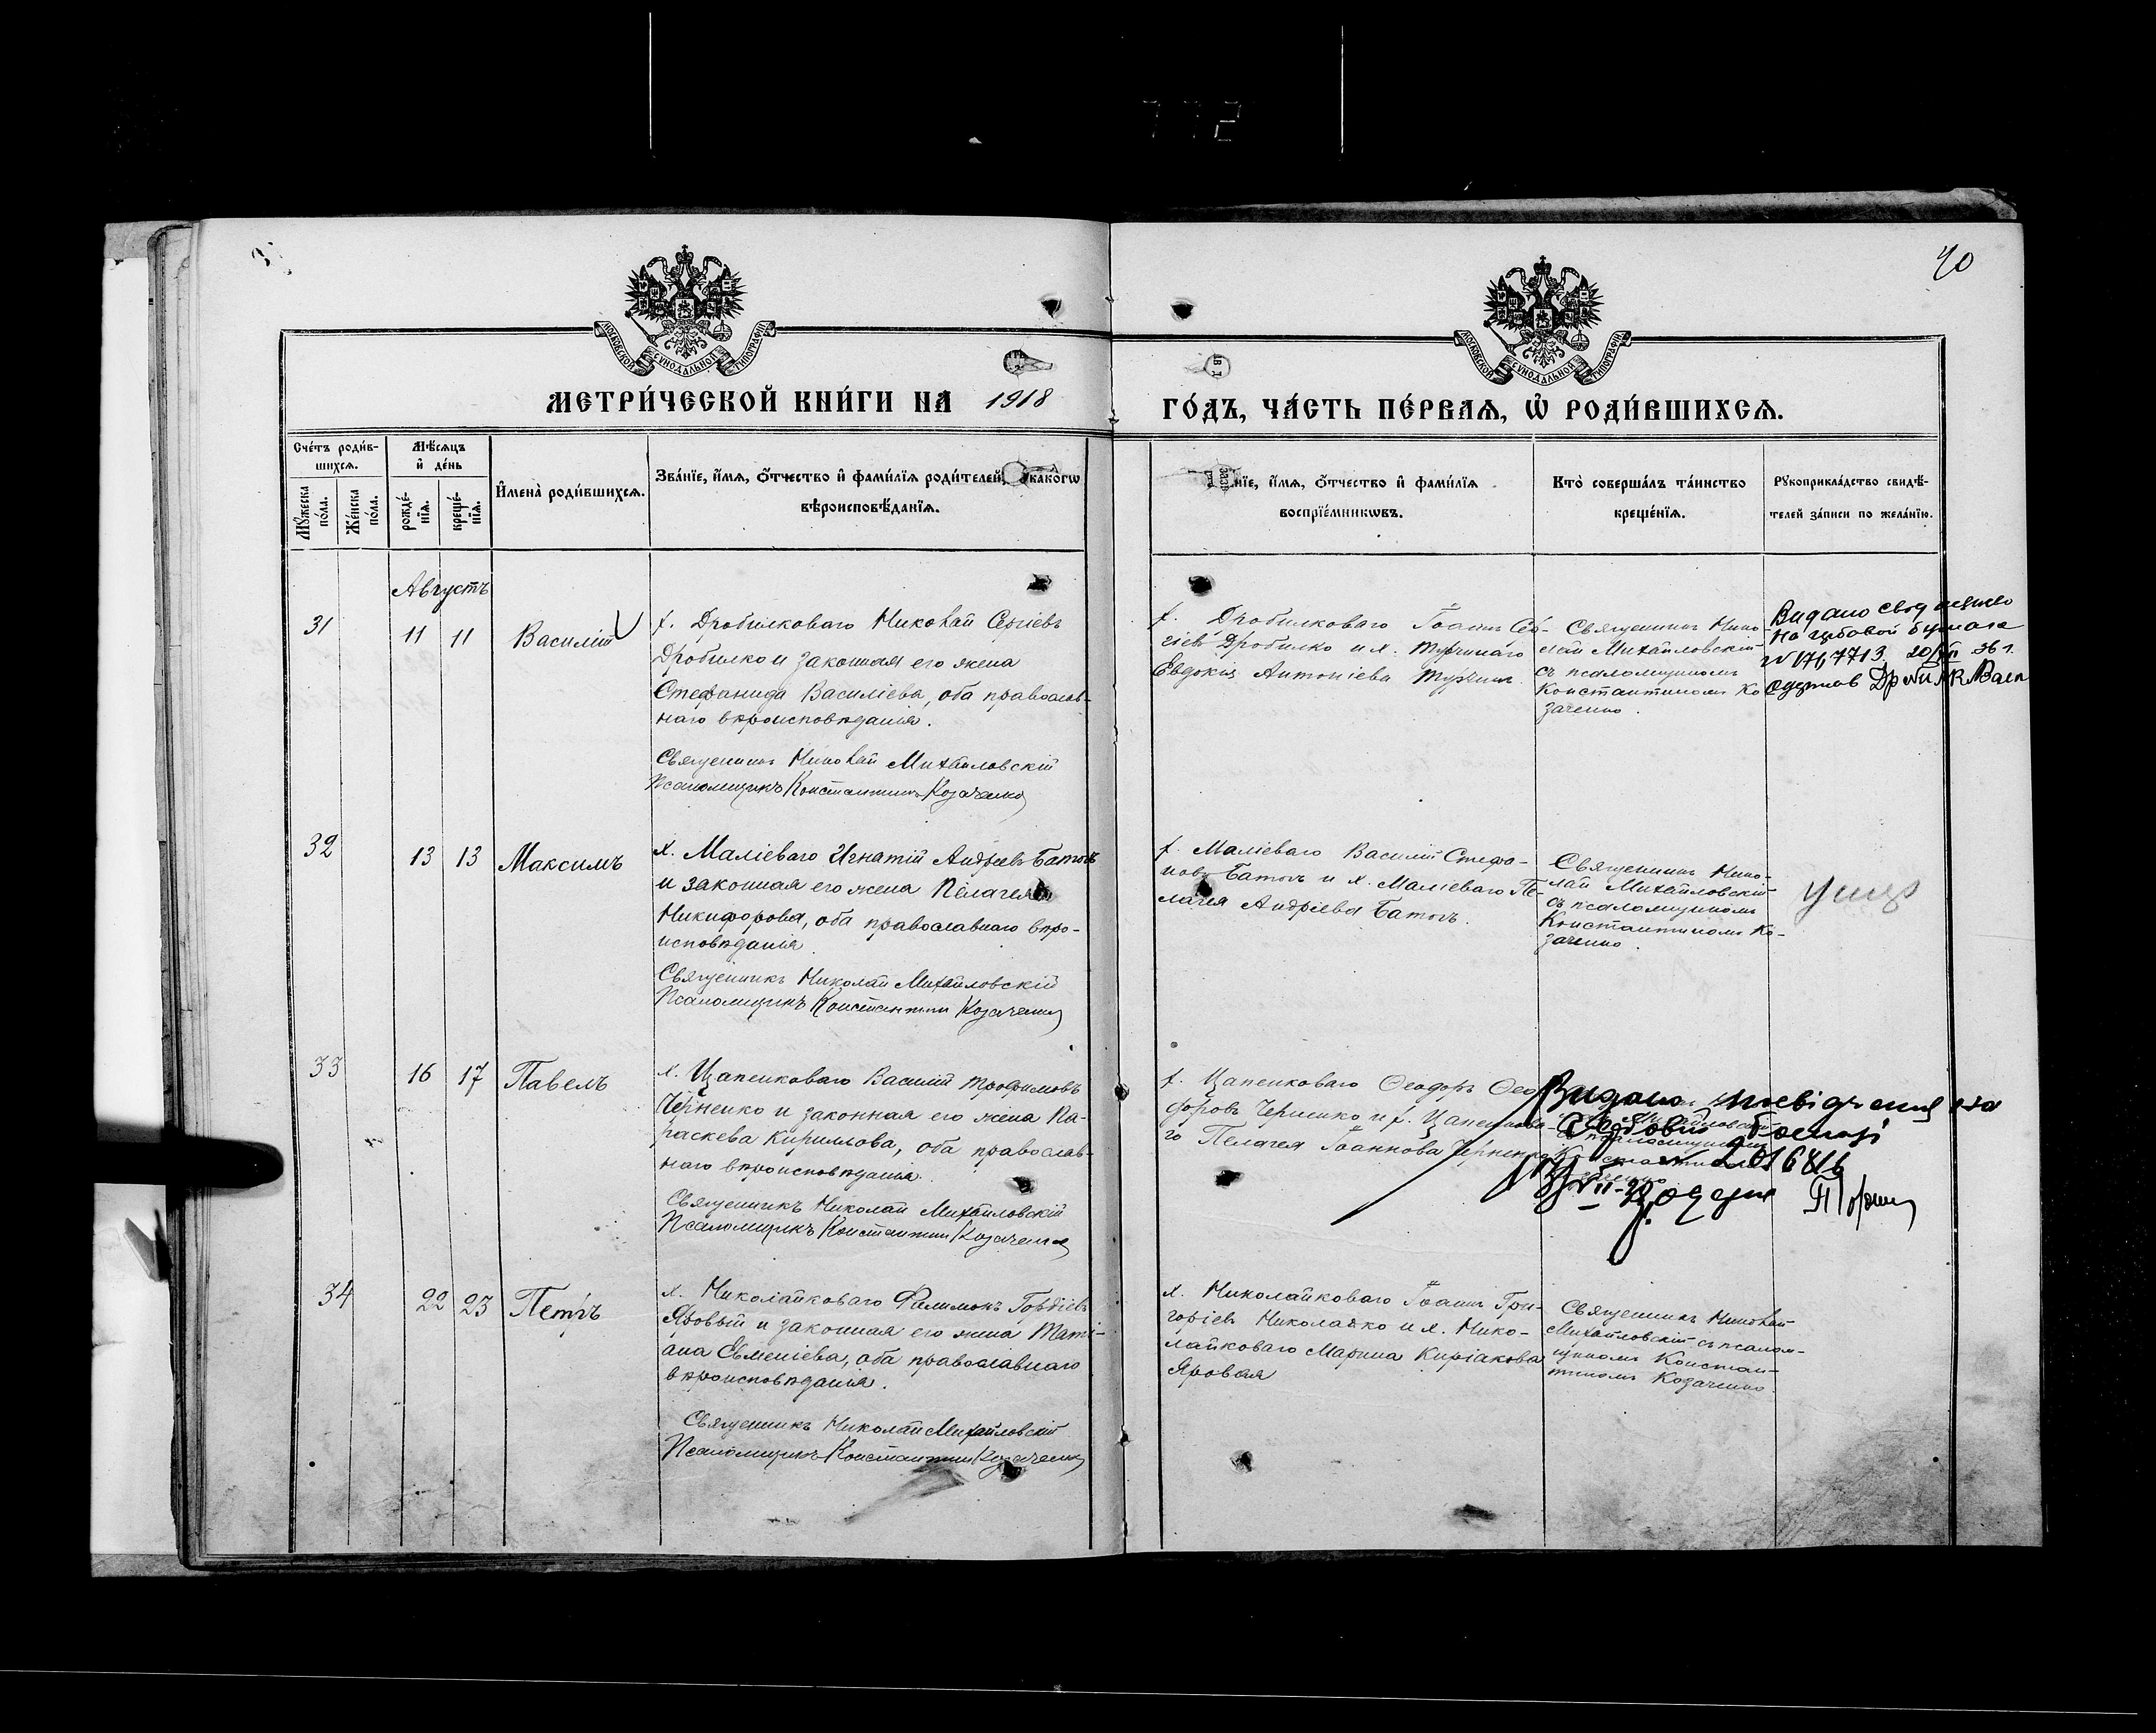 772
40
МОСКОВСКОЙ СѴНОДАЛЬНОЙ ТИПОГРАФІИ
МОСКОВСКОЙ СѴНОДАЛЬНОЙ ТИПОГРАФІИ
МЕТРИ́ЧЕСКОЙ КНИ́ГИ НА 1918
ГО́ДЪ, ЧА́СТЬ ПЕ́РВАѦ, Ѡ РОДИ́ВШИХСѦ.
Сче́тъ роди́в-
шихсѧ.
Мꙋжеска по́ла.
Же́нска по́ла.
Мѣ́сѧцъ
и де́нь
рожде́-
нїѧ.
креще́-
нїѧ.
Имена̀ роди́вшихсѧ.
Зва́нїе, и́мѧ, о́тчество и фами́лїѧ роди́телей, какогѡ
вѣроисповѣ́данїѧ.
нїе, и́мѧ, о́тчество и фами́лїѧ
воспрїе́мникѡвъ.
Кто̀ соверша́лъ та́инство
креще́нїѧ.
Рꙋкоприкла́дство свидѣ́-
телей за́писи по жела́нїю.
Августъ
31
11 11
Василій
х. Дробилковаго Николай Сергіевъ
Дробилко и законная его жена
Стефанида Василіева, оба православ-
наго вѣроисповѣданія.
Священникъ Николай Михайловскій
Псаломщикъ Константинъ Козаченко
х. Дробилковаго Іоаннъ Сер-
гіевъ Дробилко и х.
Евдокія Антоніева
Священникъ Нико-
лай Михайловскій
съ псаломщикомъ
Константиномъ Ко
заченко.
Видано
на гербовой бумаге
20/VII 36 г.
32
13 13
Максимъ
х. Маліеваго Игнатій Андреевъ Батогъ
и законная его жена Пелагея
Никифорова, оба православнаго вѣро-
исповѣданія.
Священникъ Николай Михайловскій
Псаломщикъ Константинъ Козаченко
х. Маліеваго Василій Стефа-
новъ Батогъ и х. Маліеваго Пе-
лагея Андріева Батогъ.
Священникъ Нико-
лай Михайловскій
съ псаломщикомъ
Константиномъ Ко-
заченко.
33
16 17
Павелъ
х. Цапенковаго Василій Трофимовъ
Черненко и законная его жена Па-
раскева Кириллова, оба православ-
наго вѣроисповѣданія.
Священникъ Николай Михайловскій
Псаломщикъ Константинъ Козаченко
х. Цапенковаго Ѳеодоръ Ѳео
форовъ Черненко и х. Цапенкова-
го Пелагея Іоаннова Черненко
Видано на
34
22 23
Петръ
х. Николайковаго Филимонъ Гордіевъ
Яровый и законная его жена Таті-
ана Евменіева, оба православнаго
вѣроисповѣданія.
Священникъ Николай Михайловскій
Псаломщикъ Константинъ Козаченко
х. Николайковаго Іоаннъ Гри-
горіевъ Николайко и х. Нико-
лайковаго Марина Киріакова
Яровая
Священникъ Николай
Михайловскій съ псалом-
щикомъ Констан-
тиномъ Козаченко.